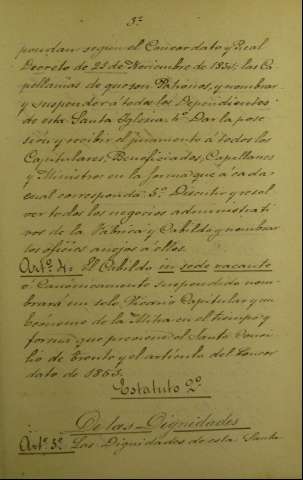 3º
pondan segun el Concordato y Real
Decreto de 28 de Noviembre de 1851; las Ca-
pellanías de que son Patronos, y nombrar
y suspender á todos los Dependientes
de esta Santa Iglesia. 4º Dar la pose-
sion y recibir el juramento á todos los
Capitulares, Beneficiados, Capellanes
y Ministros en la forma que á cada
cual corresponda. 5º Discutir y resol
ver todos los negocios administrati
vos de la Fábrica y Cabildo y nombrar
los oficios anejos á ellos.
Artº 4º El Cabildo en sede vacante
ó Canónicamente suspendido nom-
brará un solo Vicario Capitular y un
Ecónomo de la Mitra en el tiempo y
forma que previene el Santo Conci-
lio de Trento y el artículo del Concor
dato de 1853.
Estatuto 2º
De las Dignidades
Artº 5º Las Dignidades de esta Santa